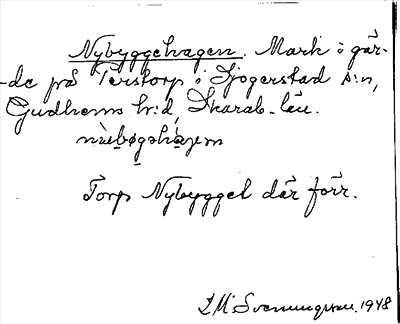 Nybyggehagen. Mark i gär-
-de på Torstorp i Sjogerstad s:n,
Gudhems h:d, Skarab. län.

Torp Nybygget där förr.
Svenungsson. 1948